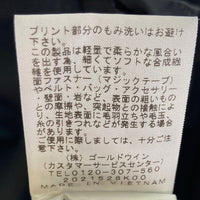 プリント部分のもみ洗いはお避け
下さい。
この製品は軽量で柔らかな風合い
を出す為、細くてソフトな合成繊
維を使用しています。
面ファスナー（マジックテープ）
やベルト・バッグ・アクセサリー
・壁面・岩など、表面の粗いもの
との摩擦や、突起物との接触によ
り、生地表面に毛羽立ちや毛玉、
糸の引きつれなどが発生する場合
があります。
ご使用に際しましては、十分ご注
意下さい。
（株）ゴールドウイン
（カスタマーサービスセンター）
TEL0120-307-560
MADE IN VIETNAM